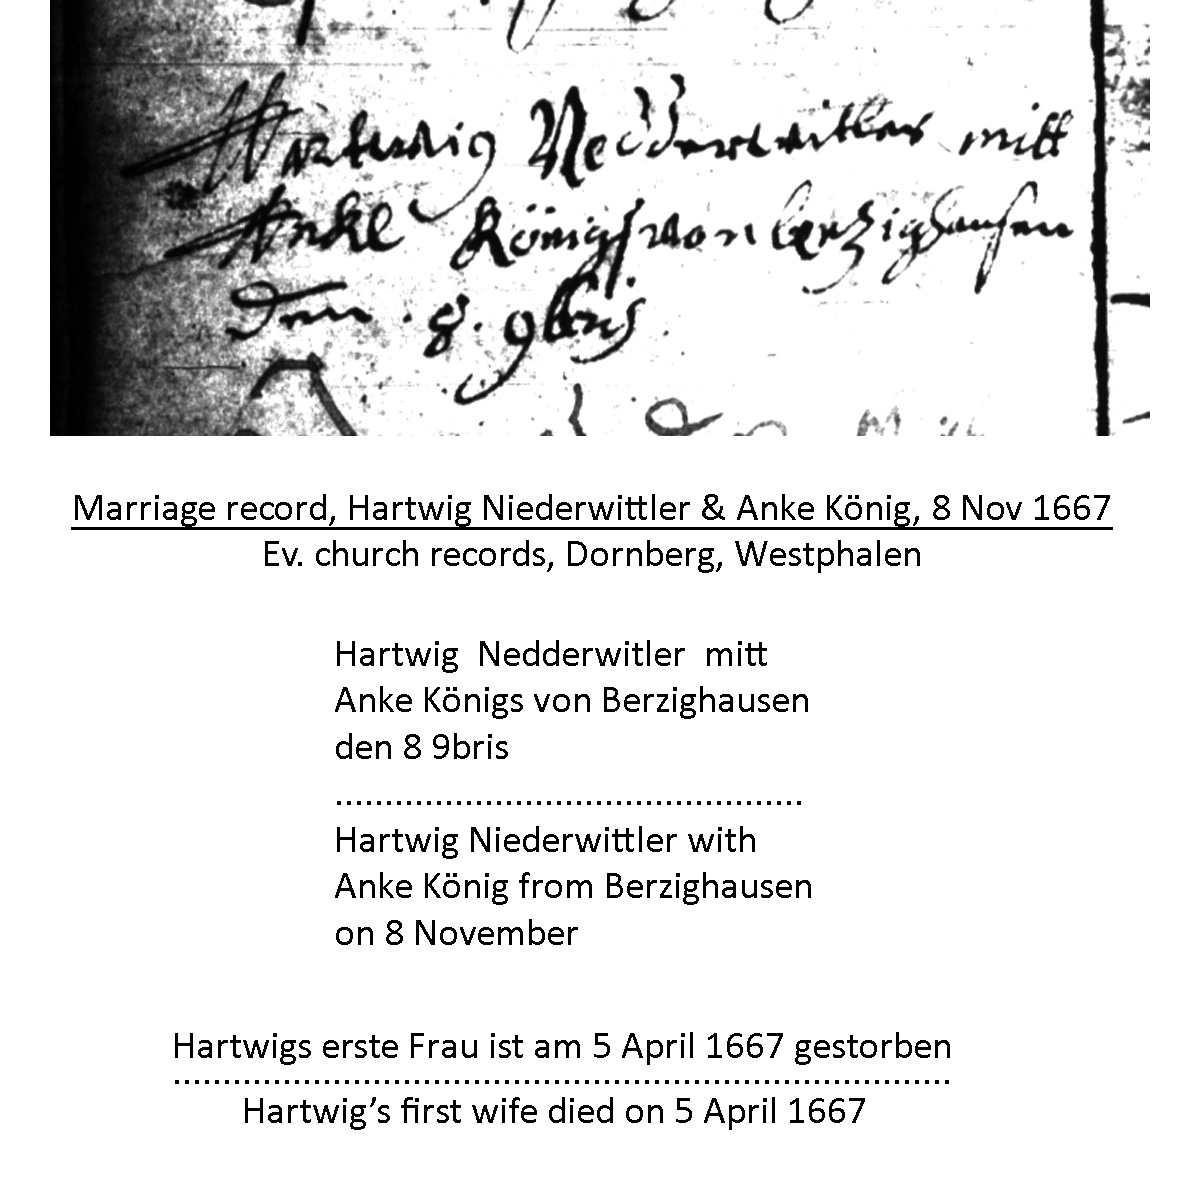 Hartwig Nedderwitler mitt
Anke Königs von berzighausen
den . 8 . 9bris .
Marriage record, Hartwig Niederwittler & Anke König, 8 Nov 1667
Ev. church records, Dornberg, Westphalen
Hartwig Nedderwitler mitt
Anke Königs von Berzighausen
den 8 9bris
Hartwig Niederwittler with
Anke König from Berzighausen
on 8 November
Hartwigs erste Frau ist am 5 April 1667 gestorben
Hartwig’s first wife died on 5 April 1667